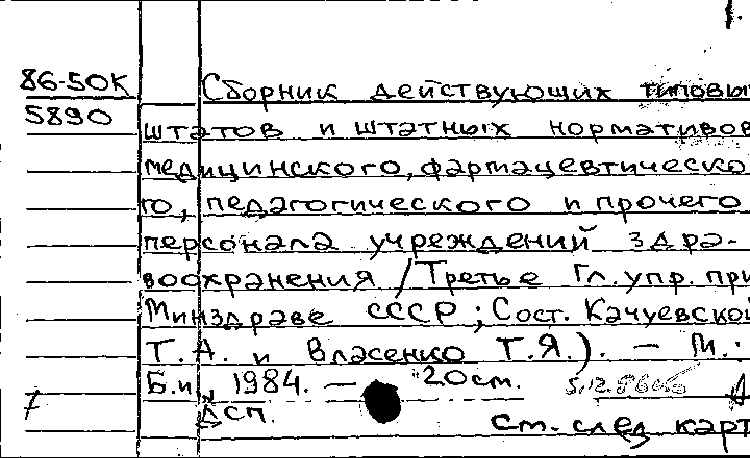 1.
86-50К Сборник действующих типовых
5890 штатов и штатных нормативов
медицинского, фармацевтическо
го, педагогического и прочего
персонала учреждений здра-
воохранения /Третье Гл. упр. при
Минздраве СССР; Сост. Качуевской
Т.А. и Власенко Т.Я.). — М.:
Б.и., 1984. — 20см.
Дсп. см. след карт